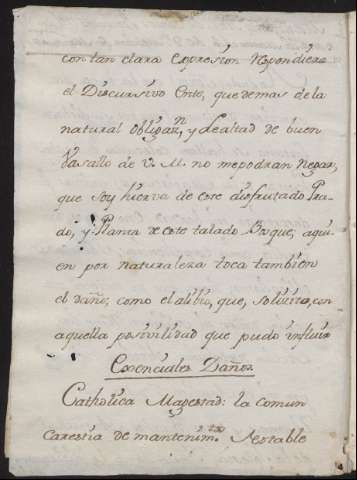 con tan clara expresion respondiera
el Discursivo Ente, que demas de la
natural Obligaz.n y Lealtad de buen
Vasallo de V. M. no me podran negar,
que soy hierva de este disfrutado Pra-
do, y Planta de este talado Bosque, aqui-
en por naturaleza toca tambien
el daño, como el alibio, que, solicito, con
aquella posivilidad que pudo influir
Esenciales Daños
Catholica Magestad: la comun
carestia de mantenim.tos Notable